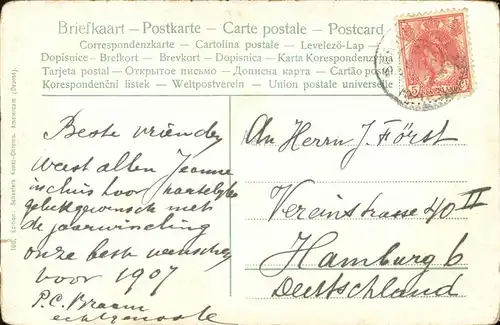 Briefkaart — Postkarte — Carte postale — Postcard
Correspondenzkarte — Cartolina postale — Levelező-Lap
Dopisnice — Brefkort — Brevkort — Dopisnica — Karta Korespondencyjna
Tarjeta postal — Открытое письмо — Дописна карта — Cartão postal
Korespondenční listek — Weltpostverein — Union postale universelle
5
Beste vrienden
weest allen
hartelijk
gelukgewenscht met
de jaarwisseling
onze beste wenschen
voor 1907
P.C. Braam
echtgenoote
An Herrn J. Först
Vereinstrasse 40 II
Hamburg 6
Deutschland